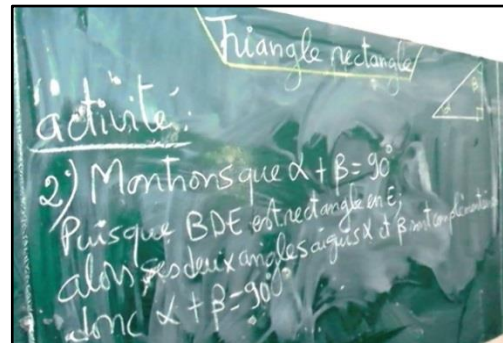 Triangle rectangle
activité:
2) Montrons que α + β = 90°
Puisque BDE est rectangle en E;
alors ses deux angles aigus α et β sont complémentaires
donc α + β = 90°